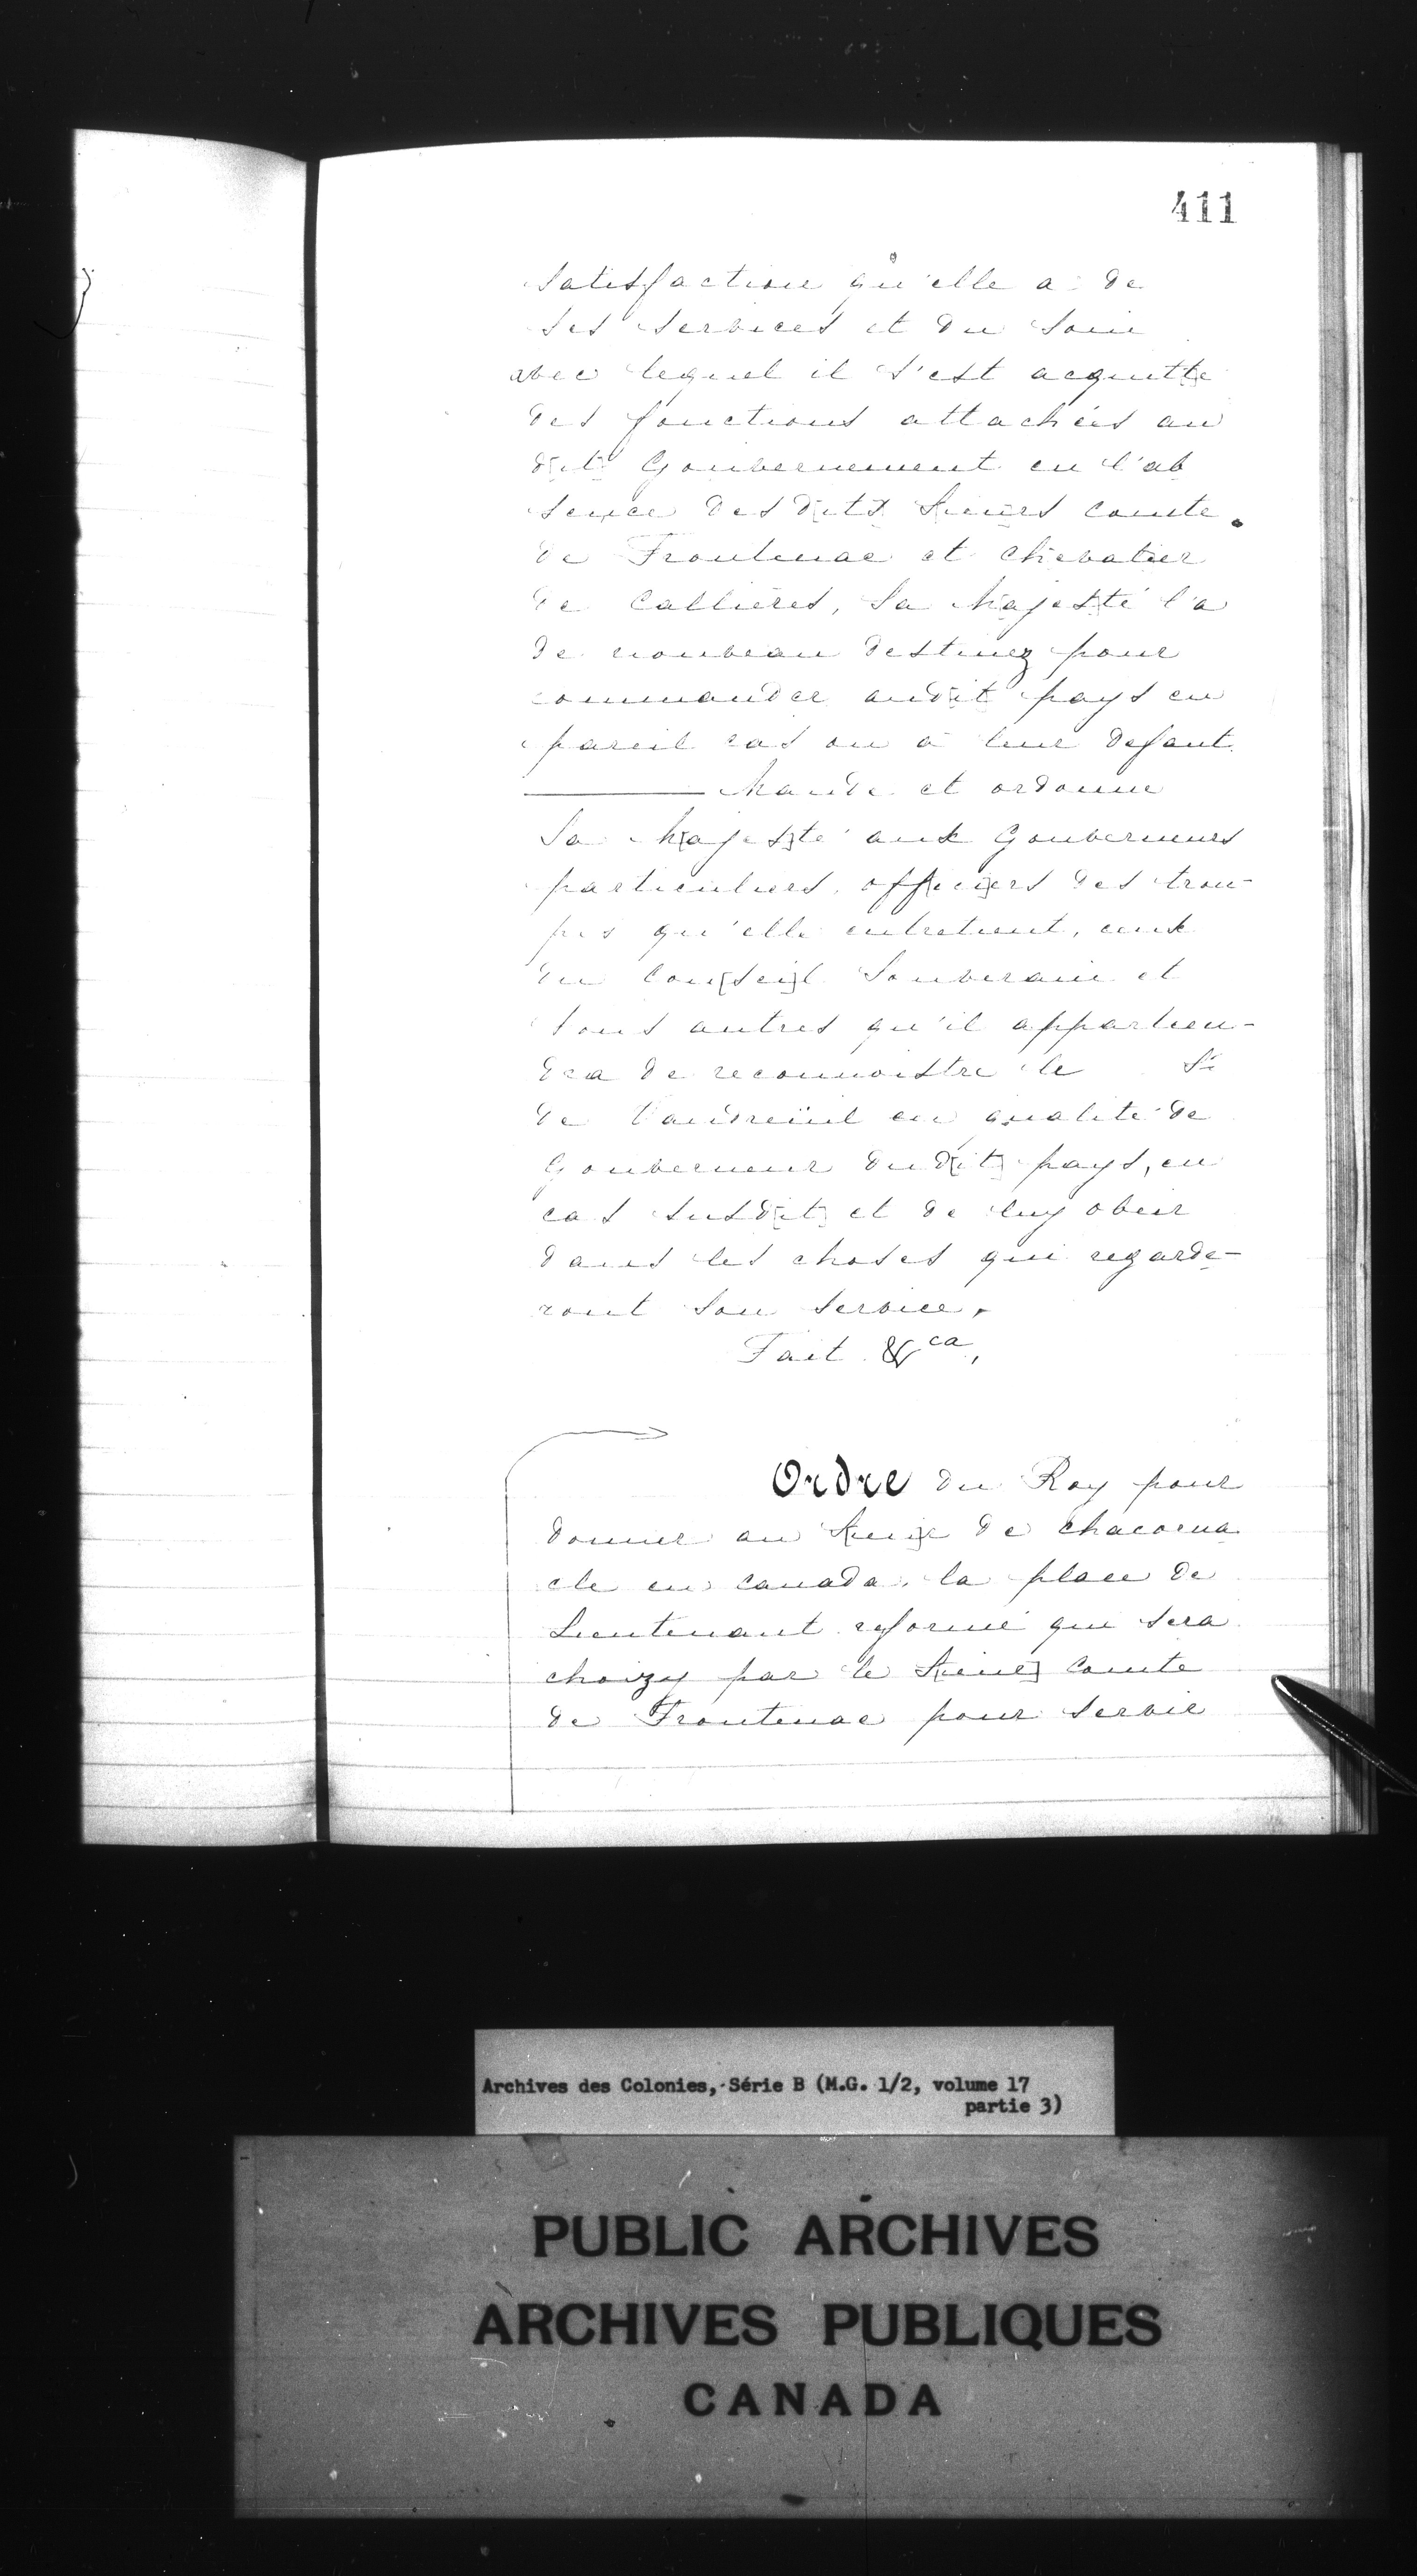 411
satisfaction qu'elle a de
ses services et du soin
avec lequel il s'est acquitté
des fonctions attachées au
d[it] Gouvernement en l'ab
sence desd[its] S[ieurs] comte
de Frontenac et chevalier
de Callières, Sa Majesté l'a
de nouveau destinez pour
commander aud[it] pays en
pareil cas ou à leur defaut.
Mande et ordonne
Sa M[ajes]té aux Gouverneurs
particuliers, off[ici]ers des trou-
pes qu'elle entretient, ceux
du Con[sei]l Souverain et
tous autres qu'il appartien-
dra de reconnoistre le Sr
de Vaudreüil en qualité de
Gouverneur dud[it] pays, en
cas susd[it] et de luy obeir
dans les choses qui regarde-
ront son service,
Fait &ca,
Ordre du Roy pour
donner au S[ieu]r de Chacorna
cle en Canada, la place de
Lieutenant reformé qui sera
choizy par le S[ieur] Comte
de Frontenac pour servir
Archives des Colonies, Série B (M.G. 1/2, volume 17
partie 3)
PUBLIC ARCHIVES
ARCHIVES PUBLIQUES
CANADA